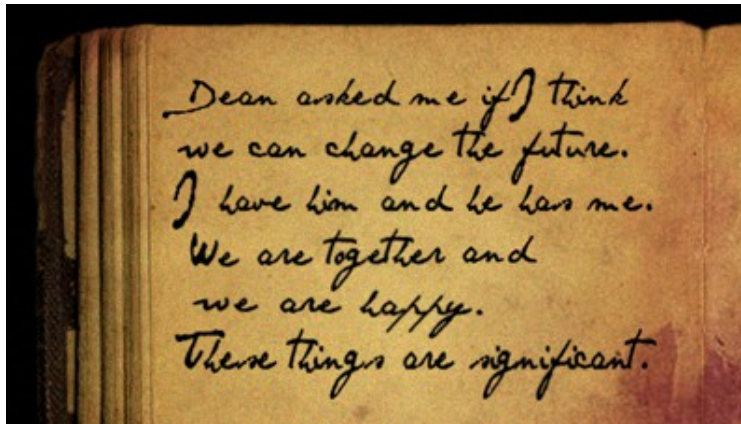 Dean asked me if I think
we can change the future.
I have him and he has me.
We are together and
we are happy.
These things are significant.